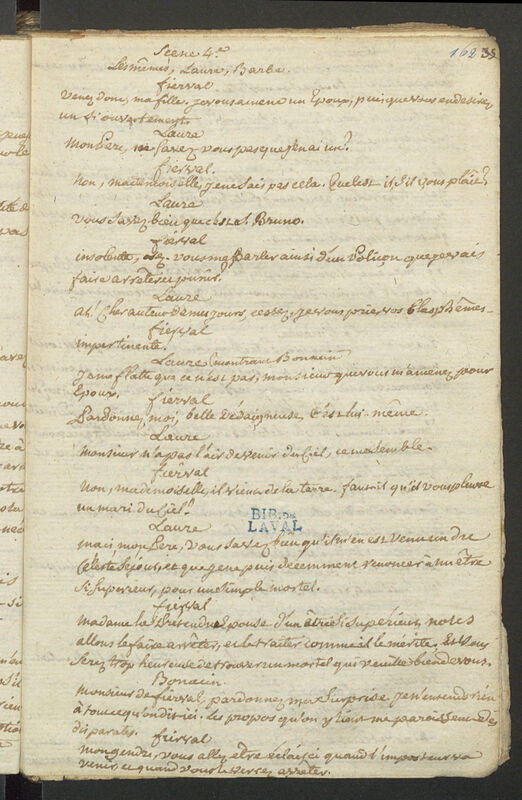 162 35
Scene 4.e
Les mêmes, Laure, Barbe.
fierval
venez donc, ma fille, je vous amene un Epoux, puisque vous en desirez
un si ouvertement.
Laure
Mon Pere, ne savez vous pas que j'en ai un?
fierval.
Non, mademoiselle, je ne sais pas cela. Quel est il, s'il vous plaît?
Laure
vous savez bien que c'est st. Bruno.
fierval
insolente, osez-vous me parler ainsi d'un Poliçon que je vais
faire arrêter et punir?
Laure
ah! Cher auteur de mes jours, cessez, je vous prie, vos blasphêmes.
fierval
impertinente.
Laure montrant Bonnein
Je me flatte que ce n'est pas, monsieur que vous m'amenez pour
Epoux.
fierval
Pardonnez moi, belle dédaigneuse, c'est lui-même.
Laure
Monsieur n'a pas l'air de venir du Ciel, ce me semble.
fierval
Non, mademoiselle, il vient de la terre. faut il qu'il vous pleuve
un mari du Ciel?
BIB. DE
LAVAL
Laure
mais mon Pere, vous savez bien qu'il m'en est venu un de
Celeste Séjour, et que je ne puis decemment renoncer à un être
si Superieur, pour un simple mortel.
fierval
madame la Pretendue Epouse d'un être si superieur, nous
allons le faire arrêter, et le traiter comme il le mérite. Et vous
serez trop heureuse de trouver un mortel qui veuille bien de vous.
Bonnein.
Monsieur de fierval, pardonnez ma surprise je n'entends rien
à tout ce qu'on dit ici. Les propos qu'on y tient me paroissent des
disparates.
fierval
mon gendre, vous allez être éclairci quand l'imposteur va
venir et quand vous le verrez arrêter.